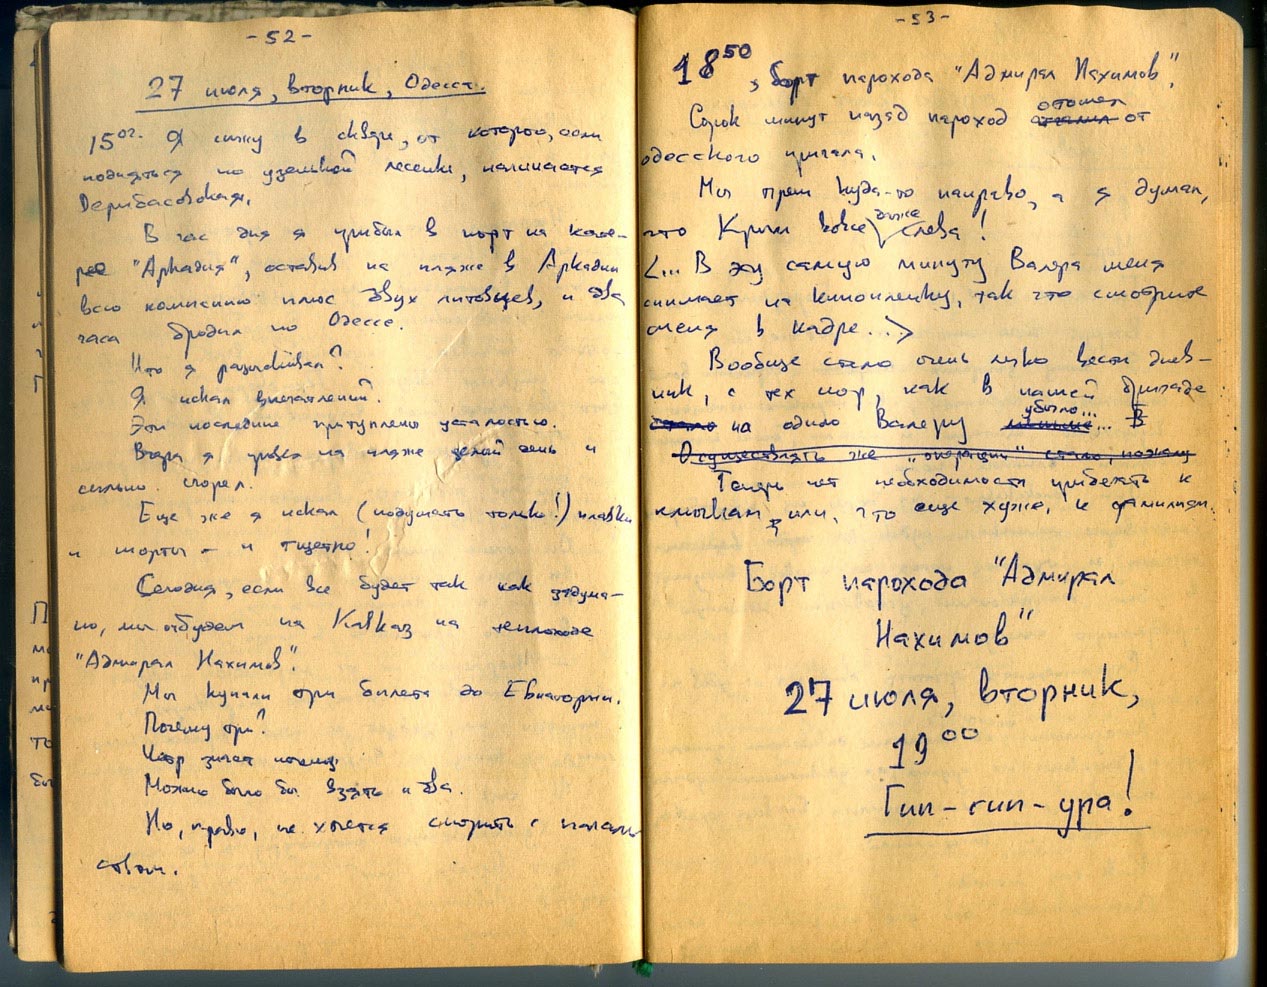 - 52 -
27 июля, вторник, Одесса.
15⁰². Я сижу в сквере, от которого, если
подняться по узенькой лесенке, начинается
Дерибасовская.
В час дня я прибыл в порт на кате-
ре "Аркадия", оставив на пляже в Аркадии
всю компанию плюс двух литовцев, и два
часа бродил по Одессе.
Что я разыскивал?
Я искал впечатлений.
Эти последние притуплены усталостью.
Вчера я провел на пляже целый день и
сильно сгорел.
Еще же я искал (подумать только!) плавки
и шорты – и тщетно!
Сегодня, если все будет так как задума-
но, мы отбудем на Кавказ на теплоходе
"Адмирал Нахимов".
Мы купили три билета до Евпатории.
Почему три?
Черт знает почему.
Можно было бы взять и два.
Но, право, не хочется спорить с началь-
ством.
- 53 -
18⁵⁰, борт парохода "Адмирал Нахимов",
Сорок минут назад пароход отошел от
одесского причала.
Мы прем куда-то направо, а я думал,
что Крым вовсе даже слева!
<... В эту самую минуту Валера меня
снимает на кинопленку, так что смотрите
меня в кадре...>
Вообще стало очень легко вести днев-
ник, с тех пор, как в нашей бригаде
на одного Валеру убыло...
Осуществлять же "операции" стало, пожалуй
Теперь нет необходимости прибегать к
кличкам, или, что еще хуже, к фамилиям.
Борт парохода "Адмирал
Нахимов"
27 июля, вторник,
19⁰⁰
Гип-гип-ура!